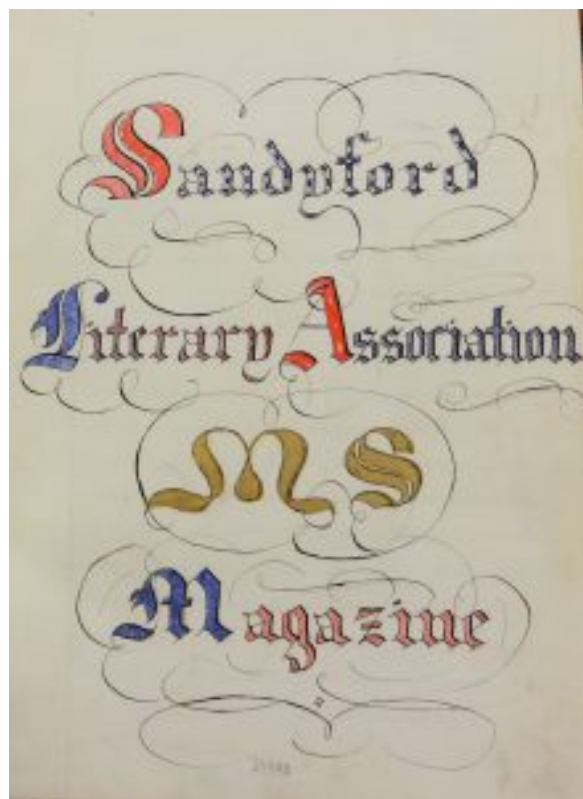 Sandyford
Literary Association
MS
Magazine